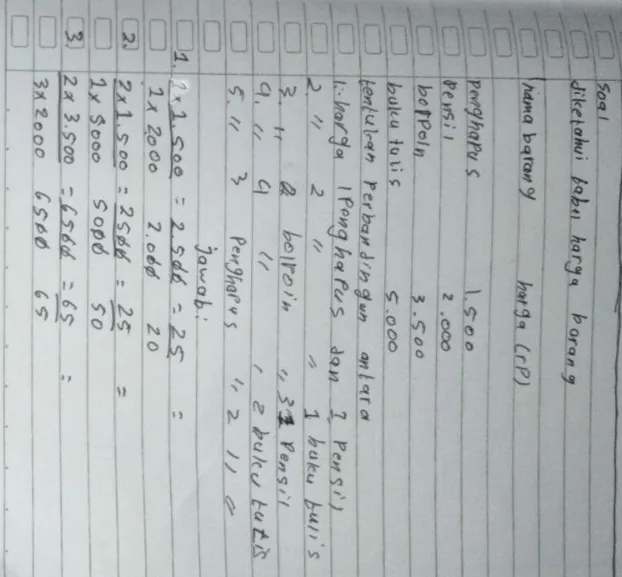 Soal
diketahui tabel harga barang
nama barang harga (rp)
penghapus 1.500
pensil 2.000
bolpoin 3.500
buku tulis 5.000
tentukan perbandingan antara
1. harga 1 Penghapus dan 1 pensil
2. " 2 " " 1 buku tulis
3. " 2 bolpoin " 3 pensil
4. " 4 " " 2 buku tulis
5. " 3 Penghapus " 2 "
jawab:
1. 2 x 1.500 = 2500 = 25 =
1 x 2000 2.000 20
2. 2 x 1.500 = 2500 = 25 =
1 x 5000 5000 50
3. 2 x 3.500 = 6500 = 65 =
3 x 2000 6500 65